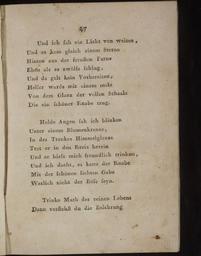 47
Und ich sah ein Licht von weiten,
Und es kam gleich einem Sterne
Hinten aus der fernsten Ferne
Eben als es zwölfe schlug,
Und da galt kein Vorbereiten;
Heller wards mit einem male
Von dem Glanz der vollen Schaale
Die ein schöner Knabe trug.
Holde Augen sah ich blinken
Unter einem Blumenkranze;
In des Trankes Himmelsglanze
Trat er in den Kreis herein
Und er hiess mich freundlich trinken,
Und ich dacht, es kann der Knabe
Mit der schönen lichten Gabe
Warlich nicht der Böse seyn.
Trinke Muth des reinen Lebens
Dann verstehst du die Belehrung